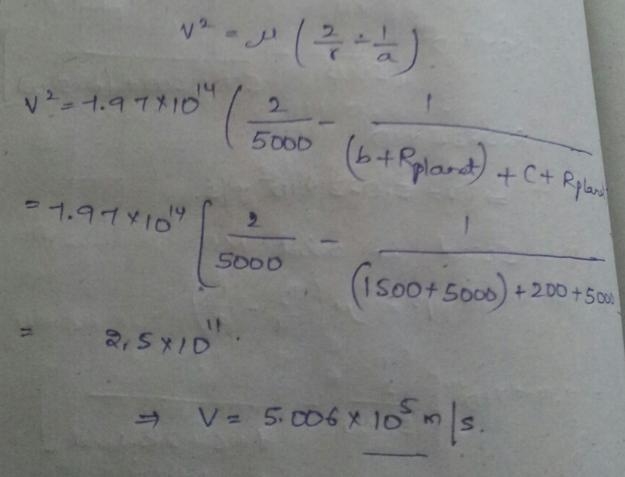 V² = μ (2/r - 1/a)
V² = 7.97×10¹⁴ (2/5000 - 1/((b+Rplanet) + C + Rplan
= 7.97×10¹⁴ [2/5000 - 1/((1500+5000)+200+5000
= 2.5×10¹¹.
⇒ V = 5.006×10⁵ m/s.